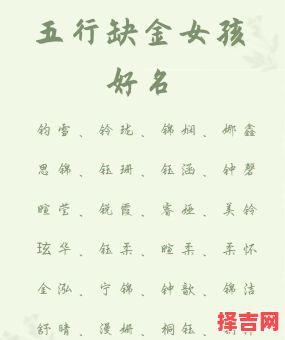 五行缺金女孩
好名
钧雪、铃珑、锦娴、娜鑫
思锦、钰珊、钰涵、钟磬
暄莹、锐霞、睿娅、美铃
玹华、钰柔、暄柔、柔怀
金泓、宁锦、钟歆、锦洁
纾晴、漫姗、桐钰、
择吉网